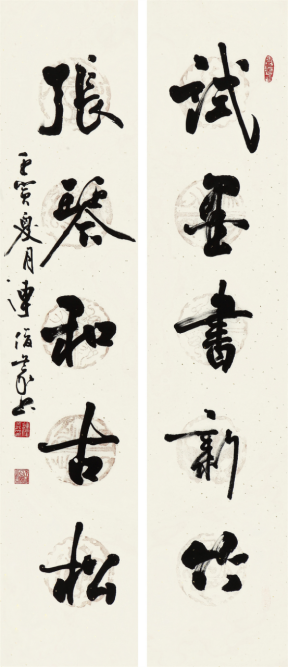 試墨書新竹
張琴和古松
壬寅夏月連俊義书